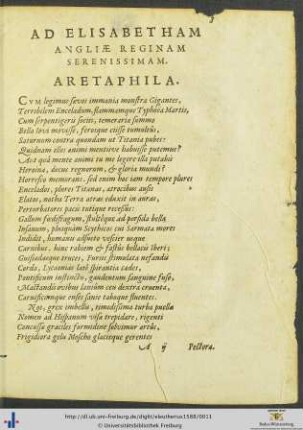 AD ELISABETHAM
ANGLIÆ REGINAM
SERENISSIMAM.
ARETAPHILA.
CVM legimus sævos immania monstra Gigantes,
Terribilem Enceladum, flammamque Typhœa Martis,
Cum serpentigeris sociis, temeraria summo
Bella Iovi movisse, ferosque ciisse tumultus,
Saturnum contra quondam ut Titania pubes:
Quidnam illos animi mentisve habuisse putemus?
Ast quâ mente animi tu me legere illa putabis
Heroina, decus regnorum, & gloria mundi?
Horresco memorans, sed enim hoc tam tempore plures
Encelados, plures Titanas, atrocibus ausis
Elatos, nostra Terra atras eduxit in auras,
Perturbatores pacis tutique recessus:
Gallum fœdifragum, stultosque ad perfida bella
Insanum, plusquam Scythicus cui Sarmata mores
Indidit, humano assuetus vescier
Carnibus, hinc rabiem & fastus bellator Iberi;
Guisiadasque truces, Furiis stimulata nefandis
Corda, Lycaoniæ
Pontificum instinctu, gaudentum sanguine fuso,
Mactandis civibus
Carnificumque
Nos, grex imbellis, timidissima turba puellæ
Nomen ad Hispanum visa trepidare, rigenti
Concussa graciles formidine subvimur artus,
Frigidiora gelu Moscho glacieque gerentes
A ij Pectora.
http://dl.ub.uni-freiburg.de/diglit/eleutherius1588/0011
© Universitätsbibliothek Freiburg